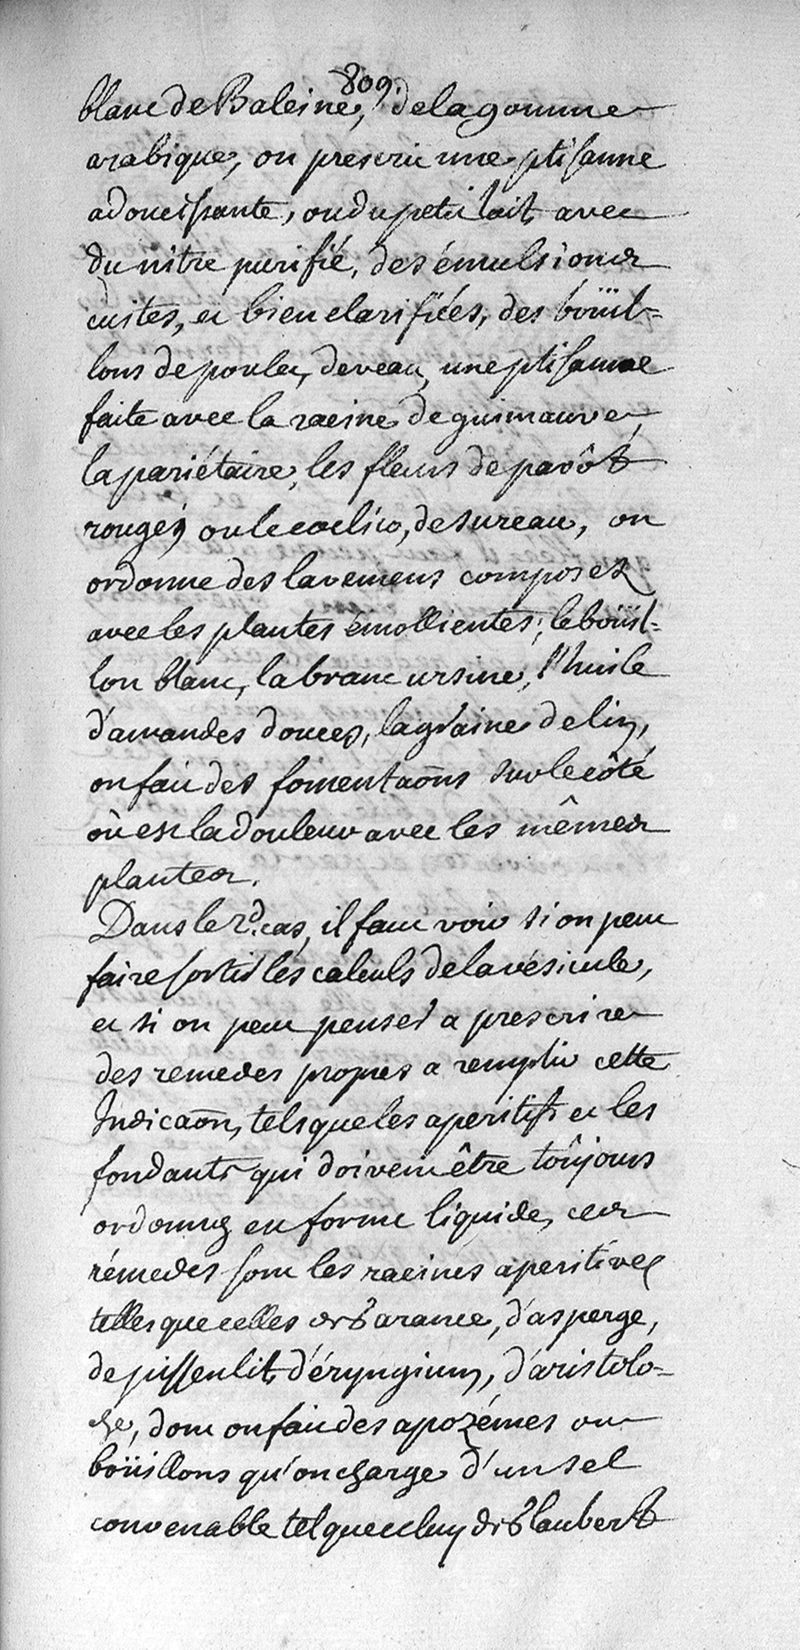 809.
blanc de Baleine, de la gomme
arabique, on prescrit une ptisanne
adoucissante, ou du petit lait avec
du nitre purifié, des émulsions
cuites, et bien clarifiées, des boüil-
lons de poulet, de veau, une ptisanne
faite avec la racine de guimauve,
la pariétaire, les fleurs de pavôt
rouge, ou le coclico, de sureau, on
ordonne des lavemens composez
avec les plantes émollientes; le boüil-
lon blanc, la branc ursine, l'huile
d'amandes douces, la graine de lin,
on fait des fomentaõns sur le côté
où est la douleur avec les mêmes
plantes.
Dans le 2d. cas, il faut voir si on peut
faire sortir les calculs de la vésicule,
et si on peut penser a prescrire
des remedes propres a remplir cette
Indicaõn, tels que les aperitifs et les
fondants qui doivent être toûjours
ordonnez en forme liquide, ces
rémedes sont les racines aperitives
telles que celles de Garance, d'asperge,
de pissenlit, d'éryngium, d'aristolo-
che, dont on fait des apozémes ou
boüillons qu'on charge d'un sel
convenable tel que celuy de Glaubert